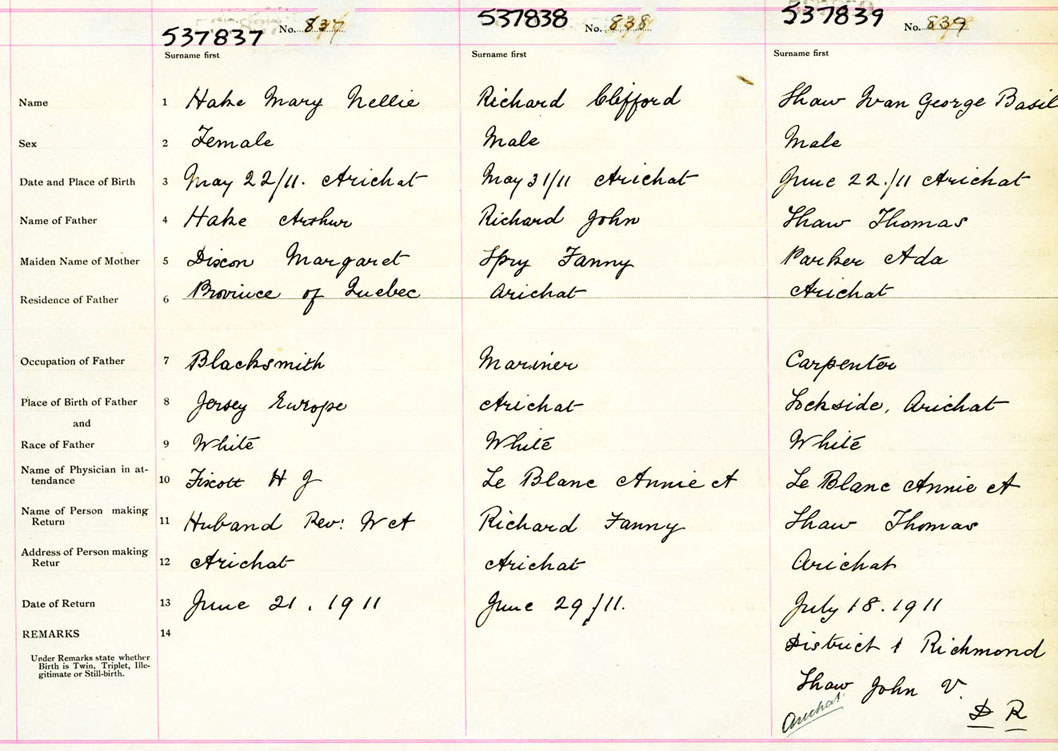 537837 No. 837 537838 No. 838 537839 No. 839
Surname first Surname first Surname first
Name 1 Hake Mary Nellie Richard Clifford Shaw Ivan George Basil
Sex 2 Female Male Male
Date and Place of Birth 3 May 22/11. Arichat May 31/11 Arichat June 22./11 Arichat
Name of Father 4 Hake Arthur Richard John Shaw Thomas
Maiden Name of Mother 5 Dixon Margaret Spry Fanny Parker Ada
Residence of Father 6 Province of Quebec Arichat Arichat
Occupation of Father 7 Blacksmith Mariner Carpenter
Place of Birth of Father 8 Jersey Europe Arichat Lockside, Arichat
and
Race of Father 9 White White White
Name of Physician in at-
tendance 10 H J Le Blanc Annie A Le Blanc Annie A
Name of Person making
Return 11 Huband Rev: W A Richard Fanny Shaw Thomas
Address of Person making
Retur 12 Arichat Arichat Arichat
Date of Return 13 June 21. 1911 June 29/11. July 18. 1911
REMARKS 14 District 1 Richmond
Under Remarks state whether
Birth is Twin, Triplet, Ille-
gitimate or Still-birth.
Shaw John V.
Arichat D R